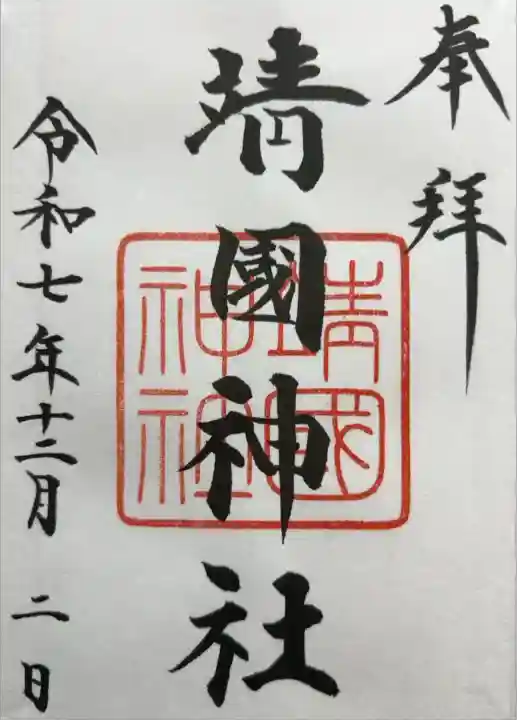 奉拜
靖國神社
靖國神社
令和七年十二月 二日